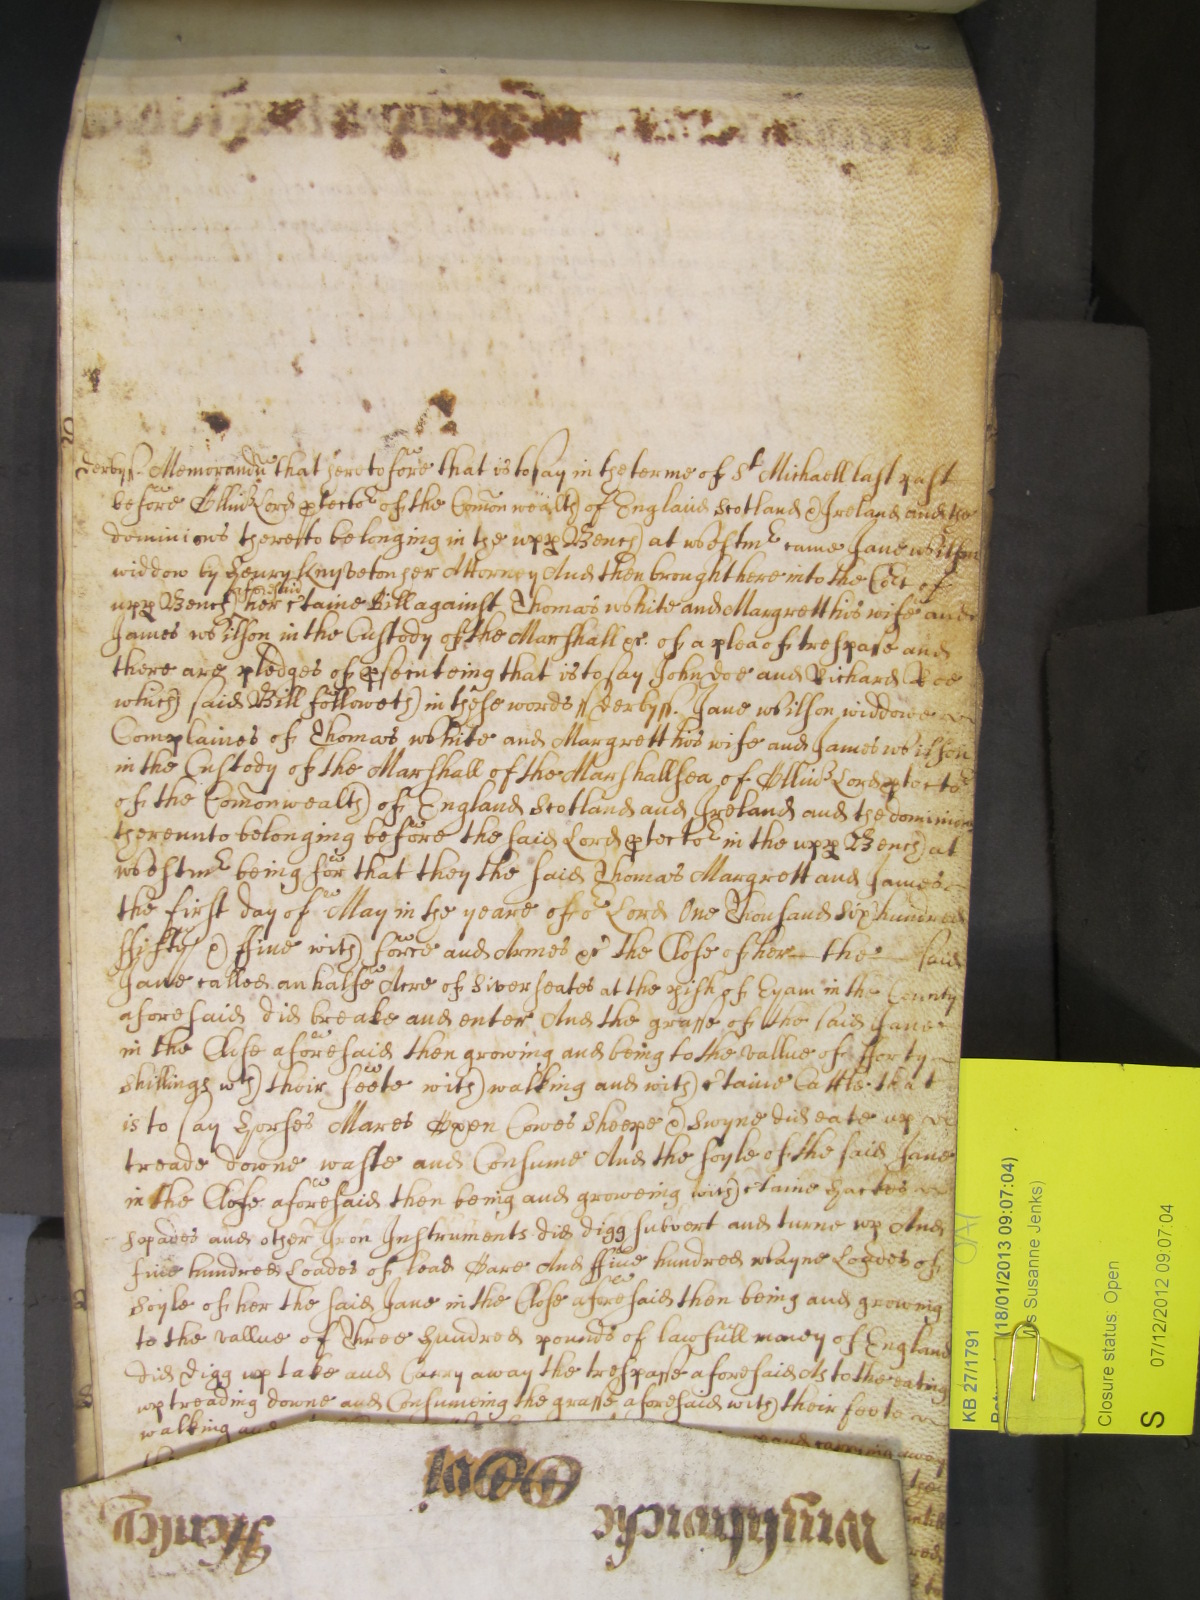 Derbyss Memorandu that heretofore that is to say in the terme of St Michaell last past
before Olliuer Lord ptector of the Comon wealth of England Scotland & Ireland and the
dominions thereto belonging in the upp Bench at Westmr came Jane Wilson
widdow by Henry Knyveton her Attorney And then brought here into the Cort of
upp Bench aforesaid her ctaine Bill against Thomas White and Margrett his wife and
James Wilson in the Custody of the Marshall &c. of a plea of trespasse and
there are pledges of psecuteing that is to say John Doe and Richard Roe
which said Bill followeth in these words ss Derbyss. Jane Wilson widdowe
Complaines of Thomas White and Margrett his wife and James Wilson
in the Custody of the Marshall of the Marshallsea of Olliuer Lord ptector
of the Comonwealth of England Scotland and Ireland and the dominions
thereunto belonging before the said Lord ptector in the upp Bench at
Westmr being for that they the said Thomas Margrett and James
the first day of May in the yeare of or Lord One Thousand Six hundred
ffifty & ffiue with force and Armes &c the Close of her the said
Jane called an halfe Acre of Siverseates at the pish of Eyam in the County
aforesaid did breake and enter And the grasse of the said Jane
in the Close aforesaid then growing and being to the vallue of fforty
shillings wth their feete with walking and with ctaine Cattle that
is to say Horses Mares Oxen Cowes Sheepe & Swyne did eate up
treade downe waste and Consume And the soyle of the said Jane
in the Close aforesaid then being and groweing with ctaine Hackes
Spades and other Iron Instruments did digg subvert and turne up And
fiue hundred Loades of lead Oare And ffiue hundred wayne Loades of
Soyle of her the said Jane in the Close aforesaid then being and growing
to the vallue of Three Hundred pounds of lawfull money of England
did digg up take and Carry away the trespasse aforesaid As to the eating
up treading downe and Consumeing the grasse aforesaid with their feete
walking and
and carrying away
Henley
Warnfurche
KB 27/1791
(18/01/2013 09:07:04)
s Susanne Jenks)
Closure status: Open
S
07/12/2012 09:07:04